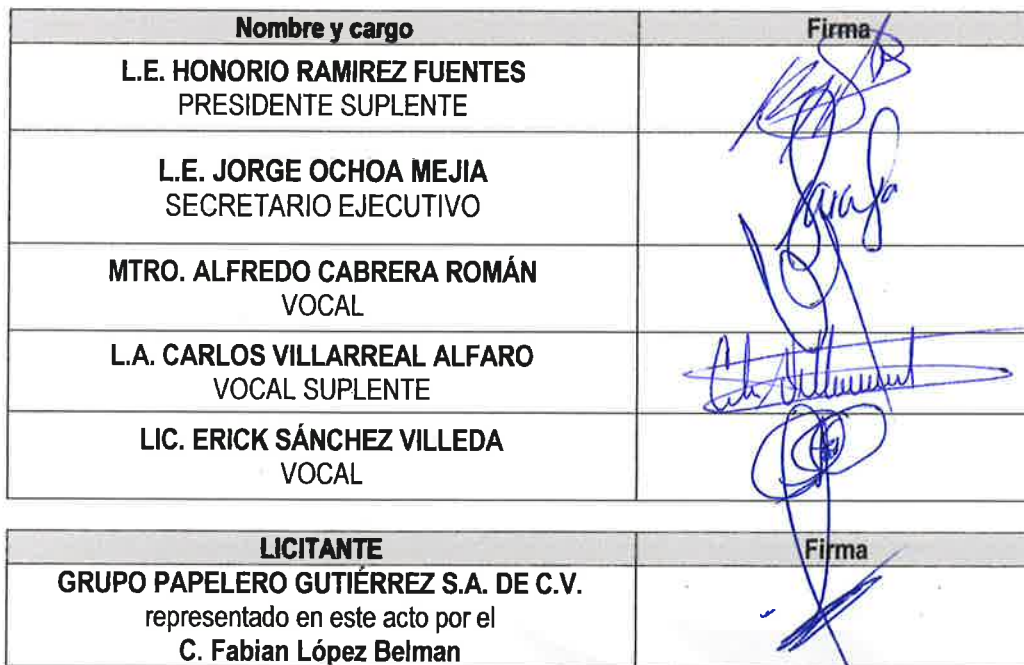 Nombre y cargo Firma
L.E. HONORIO RAMIREZ FUENTES
PRESIDENTE SUPLENTE
L.E. JORGE OCHOA MEJIA
SECRETARIO EJECUTIVO
MTRO. ALFREDO CABRERA ROMÁN
VOCAL
L.A. CARLOS VILLARREAL ALFARO
VOCAL SUPLENTE
LIC. ERICK SÁNCHEZ VILLEDA
VOCAL
LICITANTE Firma
GRUPO PAPELERO GUTIÉRREZ S.A. DE C.V.
representado en este acto por el
C. Fabian López Belman